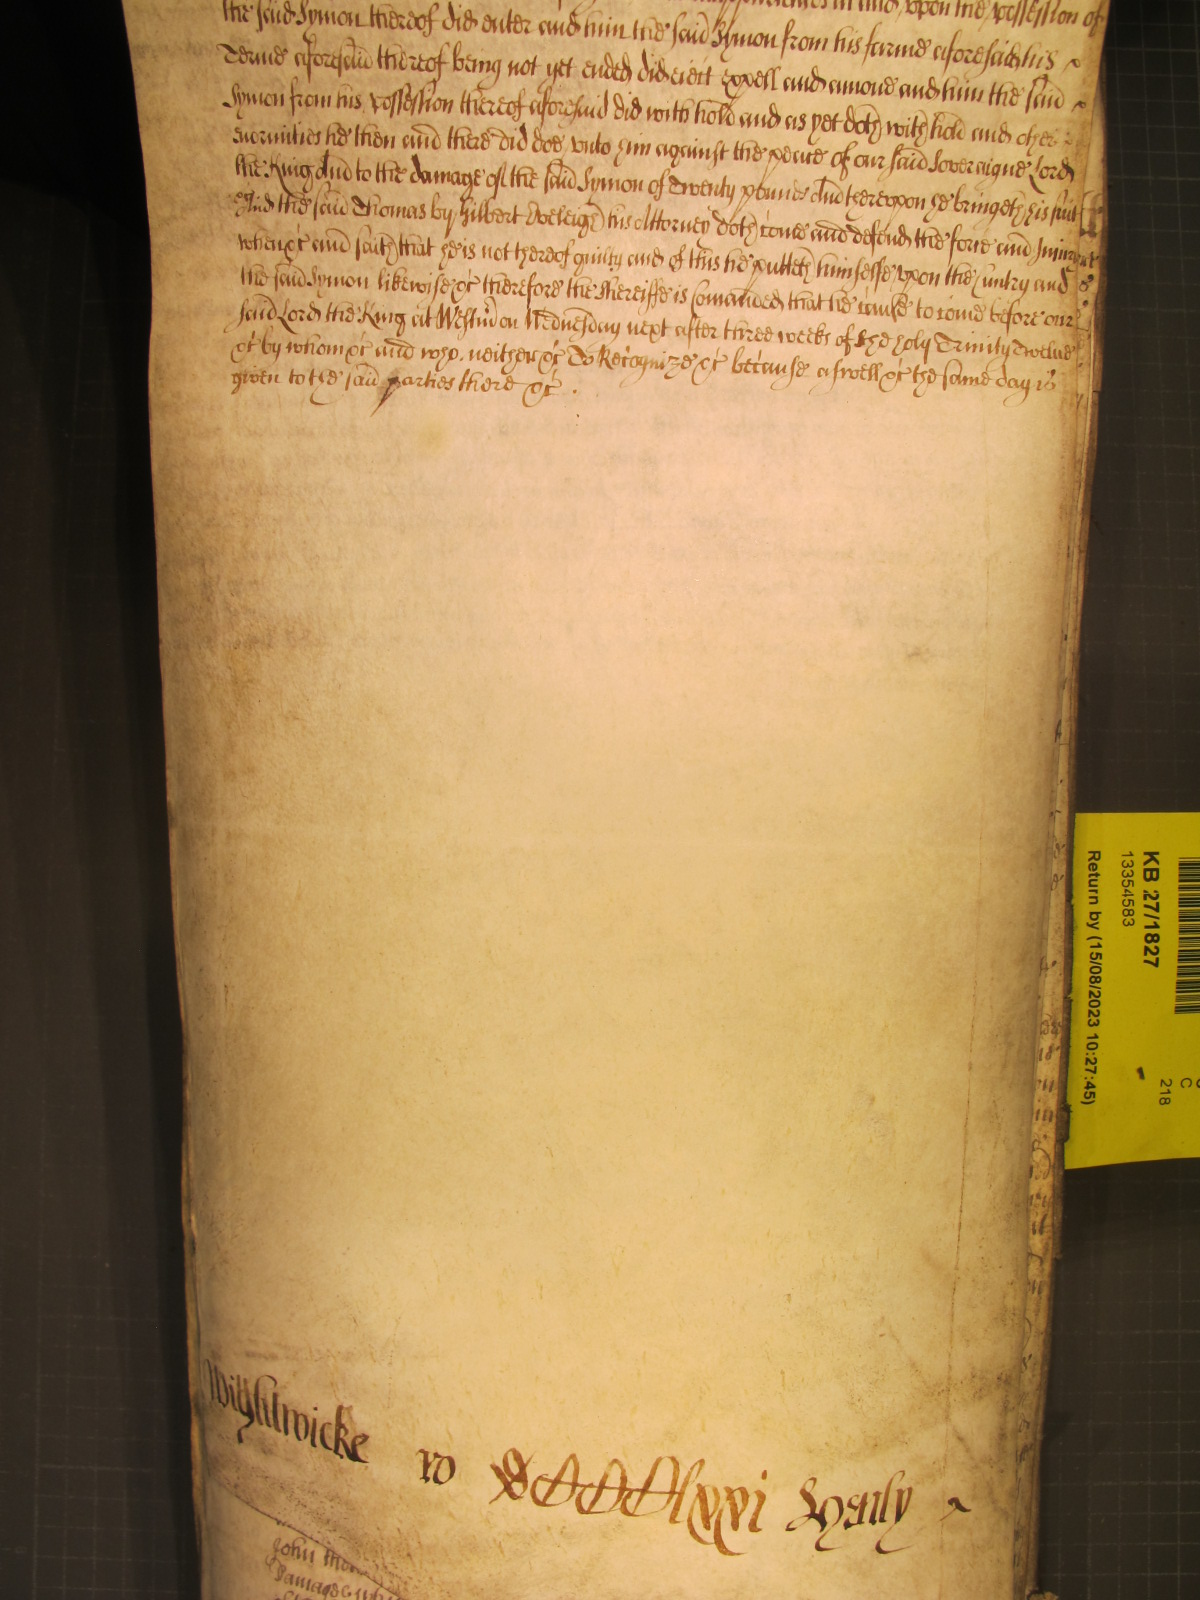 upon the possession of
the said Symon thereof did enter and him the said Symon from his farme aforesaid his
Terme aforesaid thereof being not yet ended did eiect expell and amove and him the said
Symon from his possession thereof aforesaid did with hold and as yet doth with hold and other
enormities he then and there did doe unto him against the peace of our said Soveraigne Lord
the King And to the damage of the said Symon of Twenty pounds And thereupon he bringeth his suit
And the said Thomas by Gilbert Aveleigh his Attorney doth come and defend the force and Iniury
when &c and saith that he is not thereof guilty and of this he putteth himselfe upon the Cuntry and
the said Symon likewise &c therefore the Shereiffe is comanded that he cause to come before our
said Lord the King at Westm on Wednesday next after three weeks of the holy Trinity Twelve
&c by whom &c and who neither &c To Recognize &c because aswell &c the same day is
given to the said parties there &c .
Wightwicke ro lxxvi
John
Damages
KB 27/1827
13354583
Return by (15/08/2023 10:27:45)
218
C